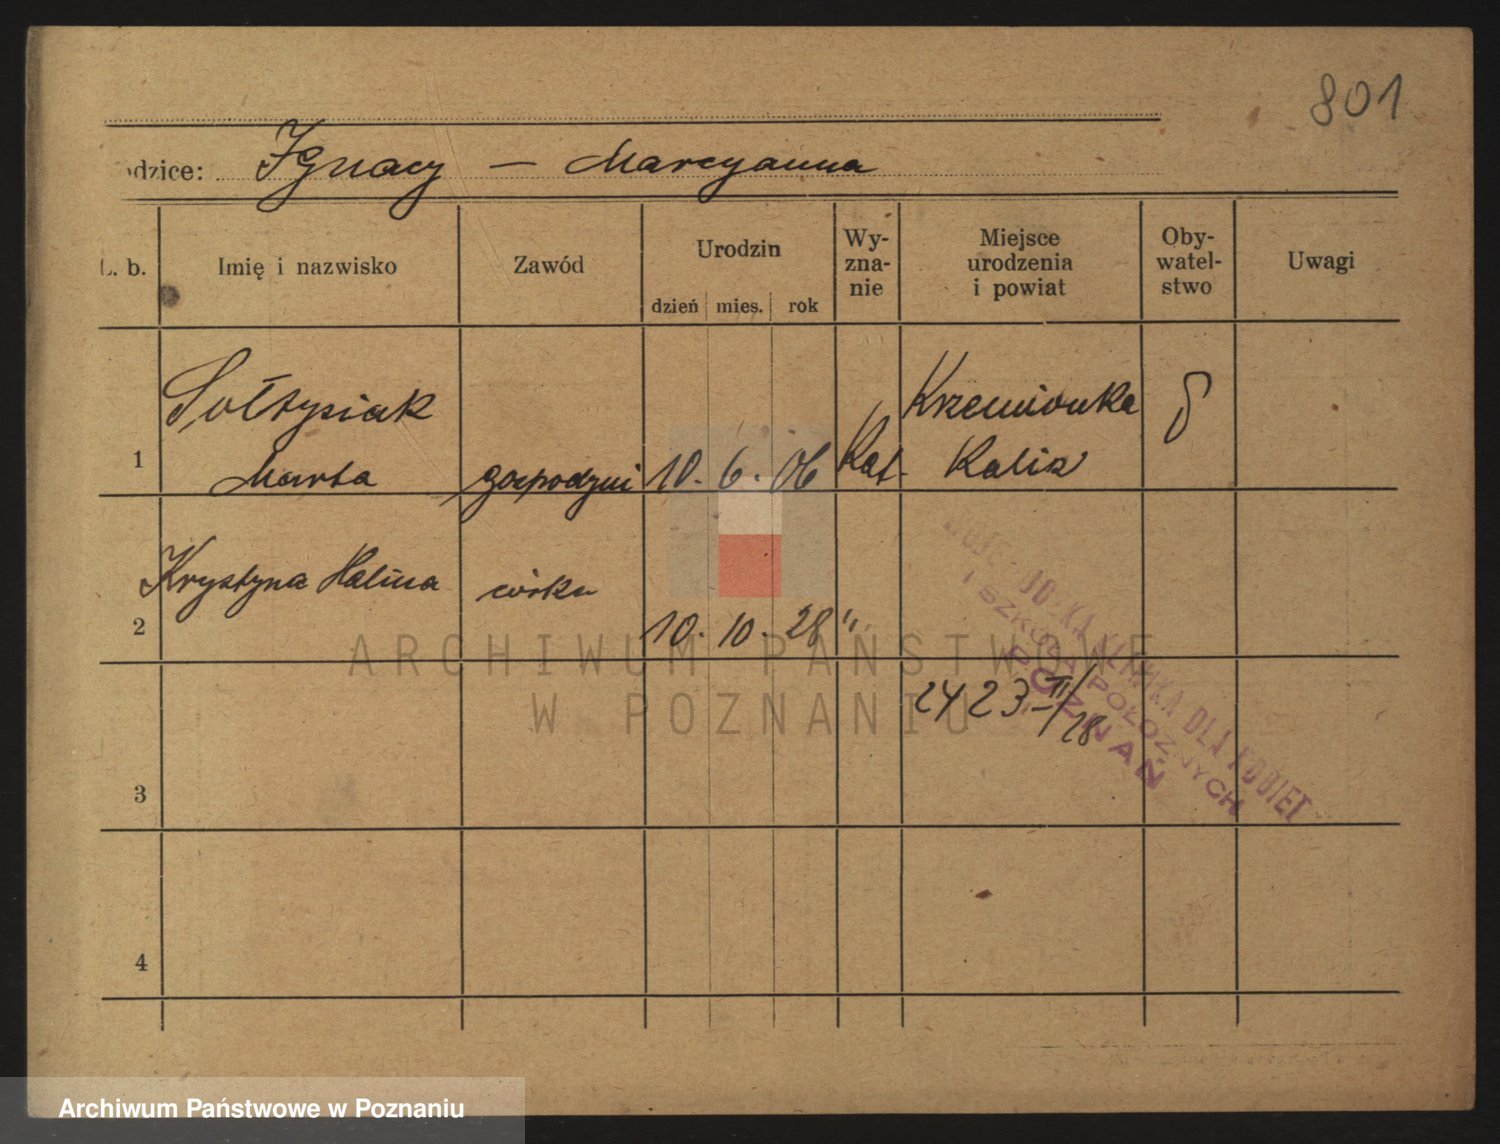 801
odzice: Ignacy — Marcyanna
L. b. Imię i nazwisko Zawód Urodzin dzień mies. rok Wy-zna-nie Miejsce urodzenia i powiat Oby-watel-stwo Uwagi
1 Sołtysiak Marta gospodyni 10. 6. 06 Kat. Krzemionka Kalisz
2 Krystyna Halina córka 10. 10. 28 "
24 23 II/28
KLINIKA DLA KOBIET
I SZKOŁA POŁOŻNYCH
POZNAŃ
3
4
ARCHIWUM PAŃSTWOWE
W POZNANIU
Archiwum Państwowe w Poznaniu